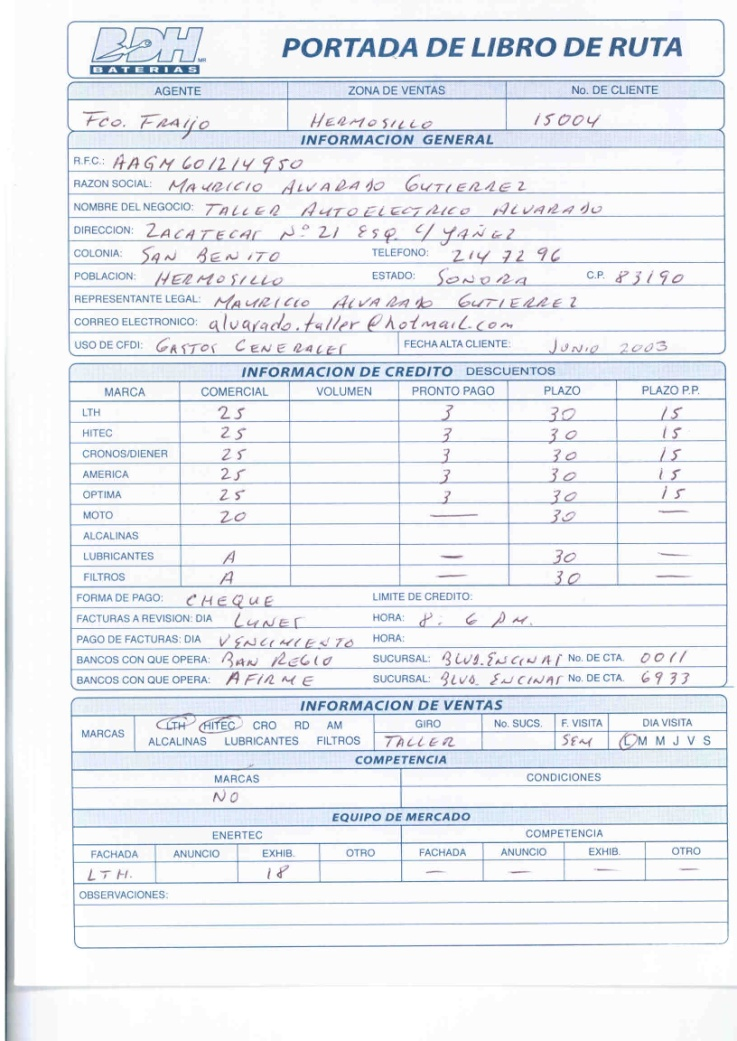 BDH MR
BATERIAS
PORTADA DE LIBRO DE RUTA
AGENTE ZONA DE VENTAS No. DE CLIENTE
Fco. FRAIJO HERMOSILLO 15004
INFORMACION GENERAL
R.F.C.: AAGM601214950
RAZON SOCIAL: MAURICIO ALVARADO GUTIERREZ
NOMBRE DEL NEGOCIO: TALLER AUTOELECTRICO ALVARADO
DIRECCION: ZACATECAS Nº 21 ESQ. C/ YAÑEZ
COLONIA: SAN BENITO TELEFONO: 214 72 96
POBLACION: HERMOSILLO ESTADO: SONORA C.P. 83190
REPRESENTANTE LEGAL: MAURICIO ALVARADO GUTIERREZ
CORREO ELECTRONICO: alvarado.taller@hotmail.com
USO DE CFDI: GASTOS GENERALES FECHA ALTA CLIENTE: JUNIO 2003
INFORMACION DE CREDITO DESCUENTOS
MARCA COMERCIAL VOLUMEN PRONTO PAGO PLAZO PLAZO P.P.
LTH 25 3 30 15
HITEC 25 3 30 15
CRONOS/DIENER 25 3 30 15
AMERICA 25 3 30 15
OPTIMA 25 3 30 15
MOTO 20 — 30 —
ALCALINAS
LUBRICANTES A — 30 —
FILTROS A — 30 —
FORMA DE PAGO: CHEQUE LIMITE DE CREDITO:
FACTURAS A REVISION: DIA LUNES HORA: 8: 6 P.M.
PAGO DE FACTURAS: DIA VENCIMIENTO HORA:
BANCOS CON QUE OPERA: BAN REGIO SUCURSAL: BLVD. ENCINAS No. DE CTA. 0011
BANCOS CON QUE OPERA: AFIRME SUCURSAL: BLVD. ENCINAS No. DE CTA. 6933
INFORMACION DE VENTAS
MARCAS LTH HITEC CRO RD AM GIRO No. SUCS. F. VISITA DIA VISITA
ALCALINAS LUBRICANTES FILTROS TALLER SEM L M M J V S
COMPETENCIA
MARCAS CONDICIONES
NO
EQUIPO DE MERCADO
ENERTEC COMPETENCIA
FACHADA ANUNCIO EXHIB. OTRO FACHADA ANUNCIO EXHIB. OTRO
LTH. 18 — — — —
OBSERVACIONES: